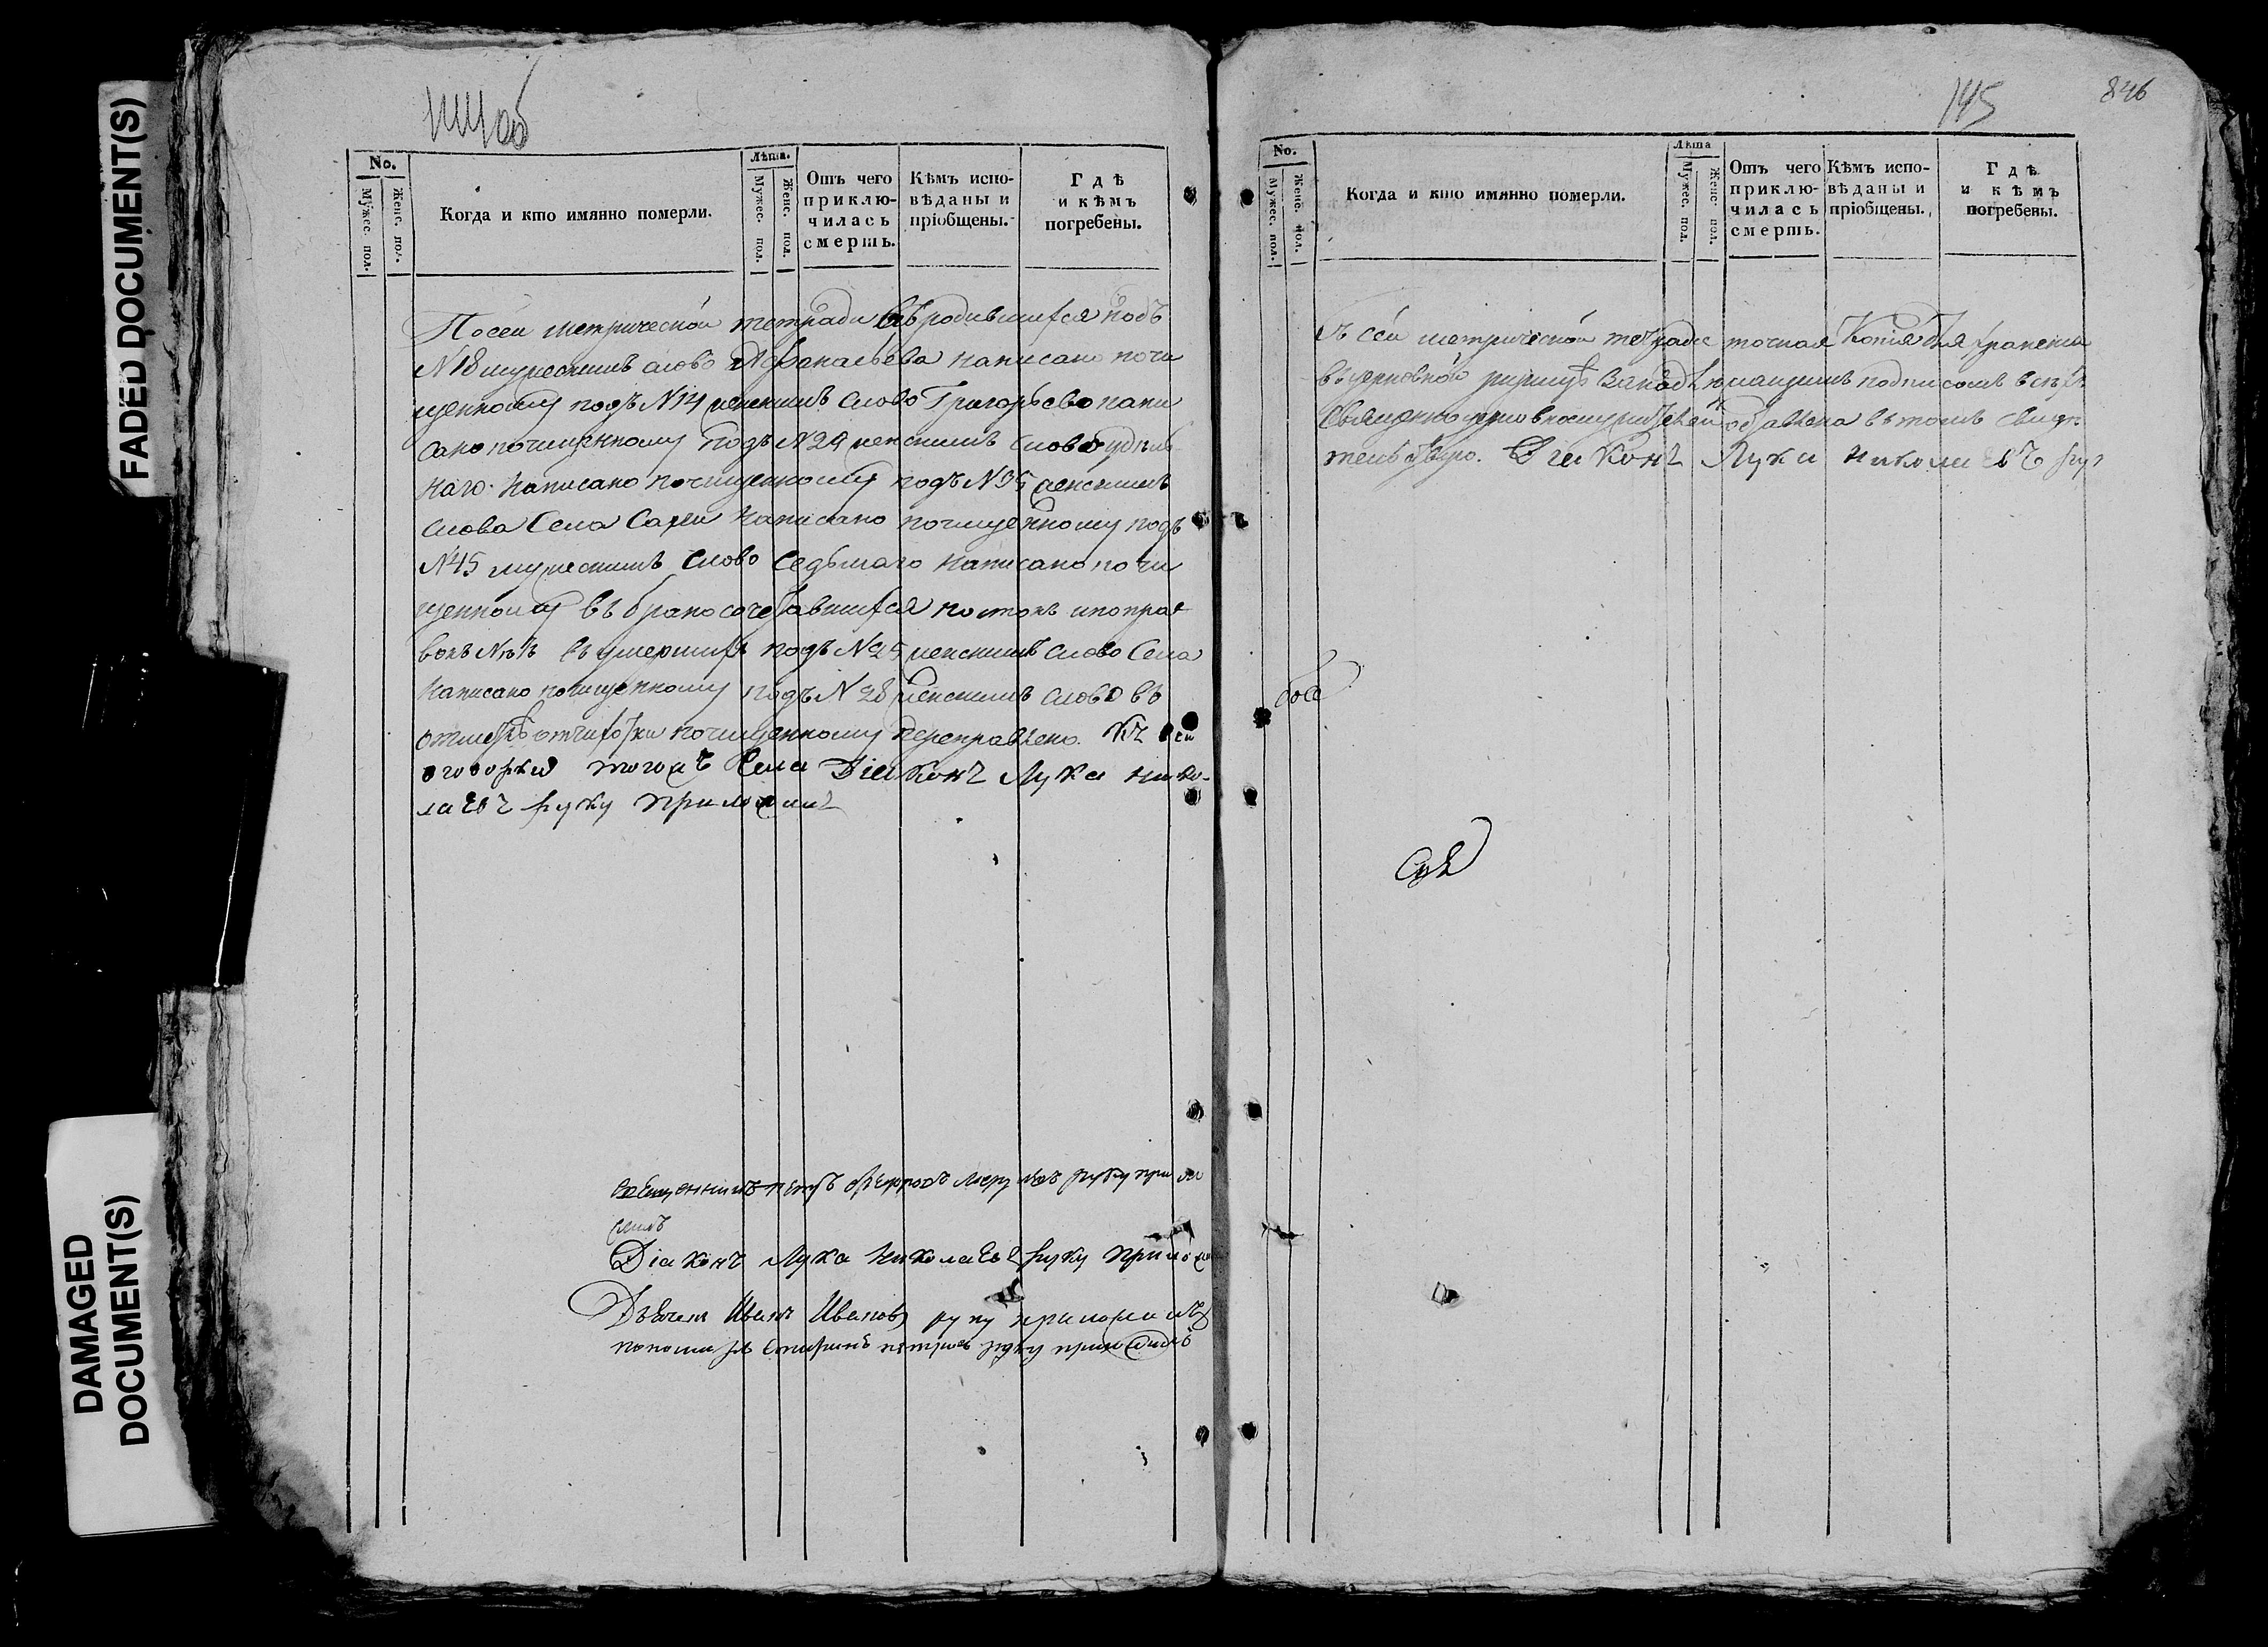 FADED DOCUMENT(S)
DAMAGED
DOCUMENT(S)
144об
No.
Мужес. пол.
Женс. пол.
Когда и кто имянно померли.
Лѣта.
Мужес. пол.
Женс. пол.
Отъ чего
приклю-
чилась
смерть.
Кѣмъ испо-
вѣданы и
пріобщены.
Гдѣ
и кѣмъ
погребены.
По сей метрической тетради въ родившихся подъ
N 18 мужескимъ слово Афанасьева написано почи
щенному подъ N 14 женскимъ слово Григорьево напи
сано почищенному подъ N 24 женскимъ слово
наго написано почищенному подъ N 35 женскимъ
слова Села написано почищенному подъ
N 45 мужескимъ слово седьмаго написано почи
щенному въ бракосочетавшихся помокъ и поправ
вокъ нѣтъ въ умершихъ подъ N 25 женскимъ слово Села
написано почищенному подъ N 28 женскимъ слово въ
отметкѣ от чахотки почищенному переправлено. Къ сей
оговорки тогожъ села Діаконъ Лука Нико-
лаевъ руку приложилъ
Священникъ Петръ руку прило
жилъ
Діаконъ Лука Николаевъ руку прилож
Дьячекъ Иванъ Ивановъ руку приложилъ
пономарь петровъ руку приложилъ
145
846
No.
Мужес. пол.
Женс. пол.
Когда и кто имянно померли.
Лѣта
Мужес. пол.
Женс. пол.
Отъ чего
приклю-
чилась
смерть.
Кѣмъ испо-
вѣданы и
пріобщены.
Гдѣ
и кѣмъ
погребены.
Съ сей метрической тетради точная Копія для храненія
въ церковной ризнице за надлежащимъ подписомъ всѣхъ
Священно церковнослужителей оставлена въ томъ свидѣ
тельствую. Діаконъ Лука Николаевъ рук